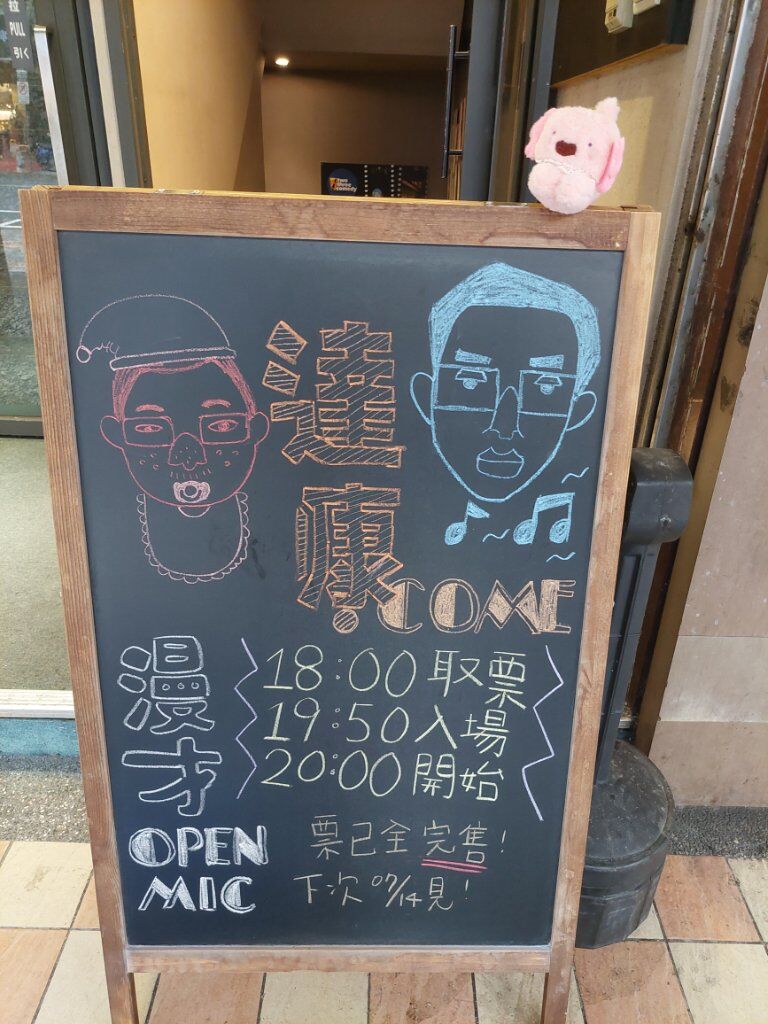 拉
PULL
引く
two
three
comedy
達康
.COME
漫才
18:00 取票
19:50 入場
20:00 開始
OPEN
MIC
票已全完售!
下次 07/14見!